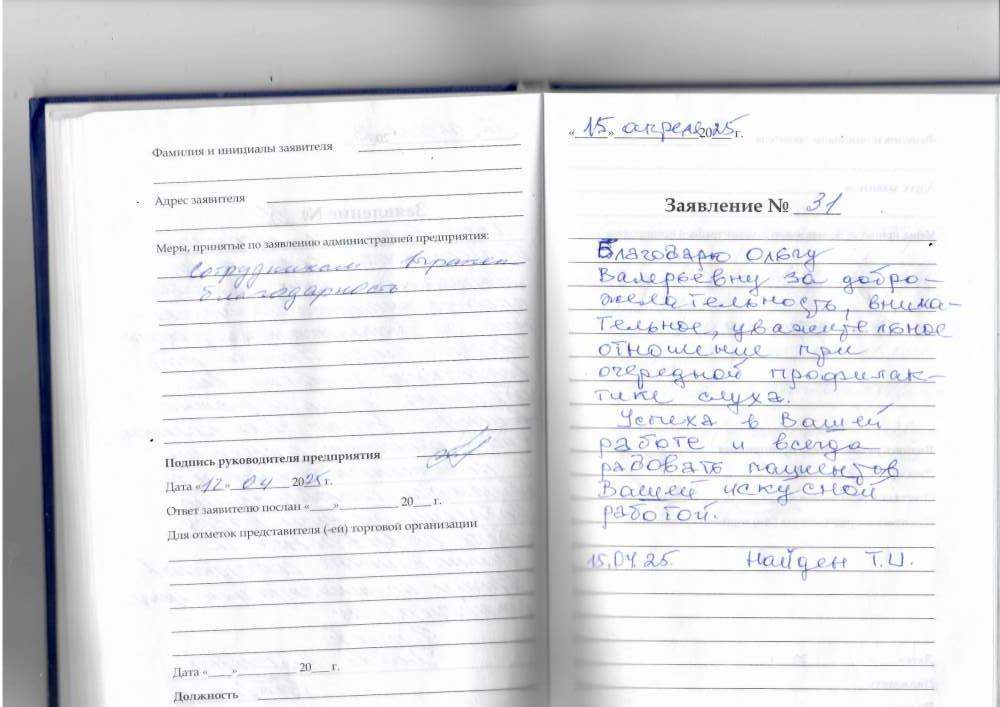 Фамилия и инициалы заявителя
Адрес заявителя
Меры, принятые по заявлению администрацией предприятия:
Сотрудникам
благодарность
Подпись руководителя предприятия
Дата «12» 04 2025 г.
Ответ заявителю послан «___»__________ 20___ г.
Для отметок представителя (-ей) торговой организации
Дата «____»__________ 20___ г.
Должность
«15» апреля 2025 г.
Заявление № 31
Благодарю Ольгу
Валерьевну за добро-
желательность, внима-
тельное, уважительное
отношение при
очередной профилак-
тике слуха.
Успеха в Вашей
работе и всегда
радовать пациентов
Вашей искусной
работой.
15.04.25. Найден Т.И.